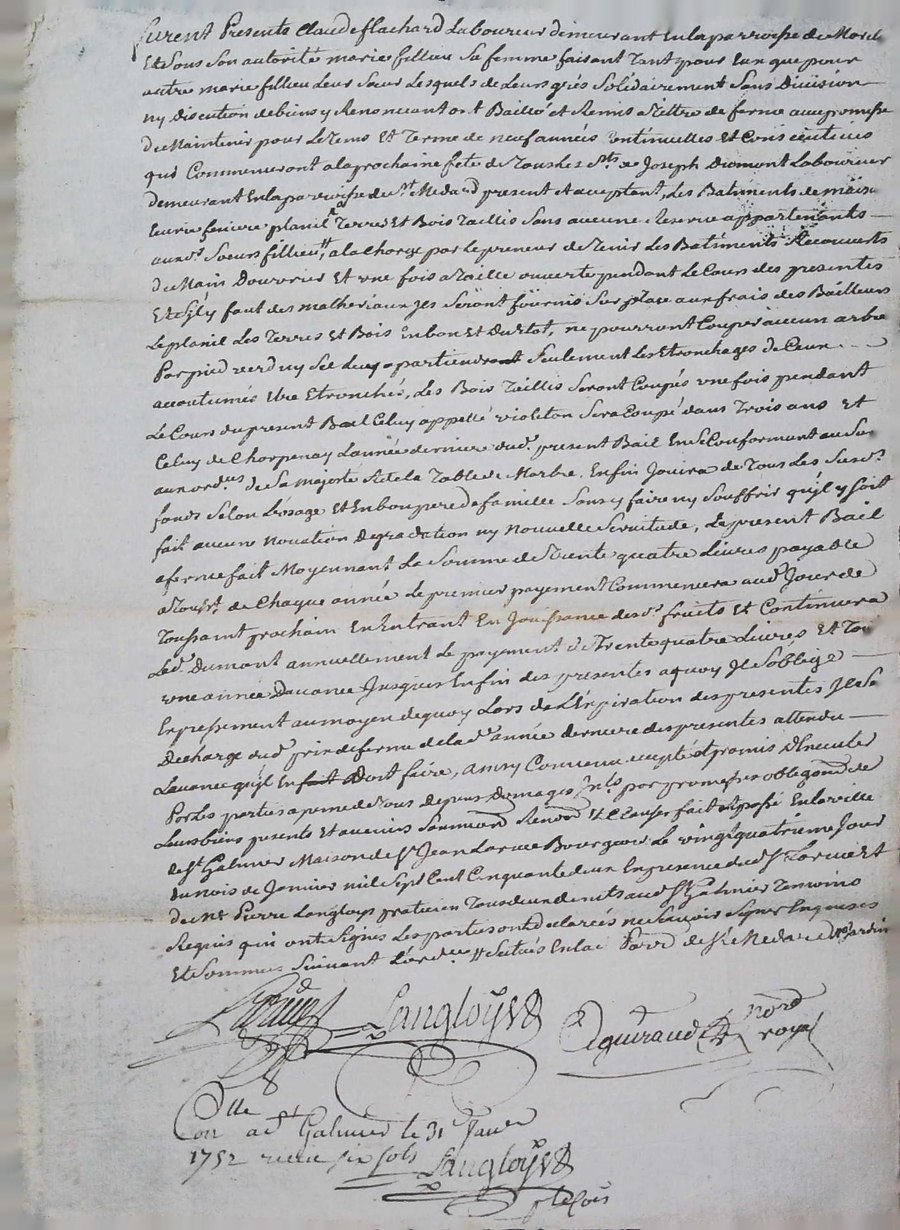 furent Presents Claude flachard Laboureur demeurant En la parroisse de
Et Sous Son autorité marie fillieu Sa femme faisant Tant pour Eux que pour
autre marie fillieu Leur Sœur Lesquels de Leurs grés Solidairement Sans Division
ny discution de biens y Renonceant ont Baillé et Remis a Tittre de ferme avec promesse
de Maintenir pour Le Tems et Terme de neuf années Continuelles et Consecutives
qui Commenceront a la prochaine fete de Tous Les Sts a Joseph Dumont Laboureur
demeurant En la parroisse de St Medard present et acceptant, Les Batiments de maison
Ecurie feniere planil Terres Et Bois Taillis Sans aucune Reserve appartenants
aux des Soeurs fillieu a la charge par Le preneur de Tenir Les Batiments Recouverts
de Main Douvrier Et une fois a Taille ouverte pendant Le Cours des presentes
Et S'il y faut des matheriaux Ils Seront fournis Sur place aux frais des Bailleurs
Le planil Les Terres Et Bois En bon Et Du Etat, ne pourront Couper aucun arbre
Par pied verd ny Sec Luy apartiendront Seulement Les Etronchages de Ceux
accoutumés Etre Etronchés, Les Bois Taillis Seront Coupés une fois pendant
Le Cours du present Bail Celuy appellé violeton Sera Coupé dans Trois ans Et
Celuy de Charpenay L'année derniere dud. present Bail En Se Conformant
aux ordces de Sa majesté Et de la Table de Marbre. Enfin Jouira de Tous Les Susds
fonds Selon L'usage Et En bon pere de famille Sans y faire ny Souffrir qu'il y Soit
fait aucune novation Degradation ny Nouvelle Servitude, Le present Bail
a ferme fait Moyennant La Somme de Trente quatre Livres payable
de Chaque année Le premier payement Commencera aud. Jour de
Toussaint prochain En Entrant En Jouissance desds fruits Et Continuera
Led. Dumont annuellement Le payement de Trente quatre Livres Et
une année D'avance Jusques En fin des presentes a quoy Il S'oblige
Expressement au moyen de quoy Lors de L'Expiration des presentes Il Se
Decharge dud. prix de ferme de lad. année derniere des presentes attendu
L'avance qu'il En Doit faire, ainsy Convenu accepté et promis D'Executer
Par Les parties a peine de Tous depens Domages par promesses oblegaons de
Leurs biens presents Et avenirs Et Clauses fait et passé En la ville
de St Galmier Maison de Sr Jean Larue Bourgeois Le vingt quatrieme Jour
du mois de Janvier mil Sept Cent Cinquante deux En presence dud. Sr Larue Et
de Me Pierre Langloys praticien Tous deux aud. St Galmier Temoins
Requis qui ont Signés Les parties ont declarées ne Sçavoir Signer Enquises
Et Sommées Suivant L'ordce Situés En lad. Parr. de St Medard
Larue
Langloys
Aguiraud Nore royal
Conlle a St Galmier le 31 Janer
1752 recu six sols
Langloys